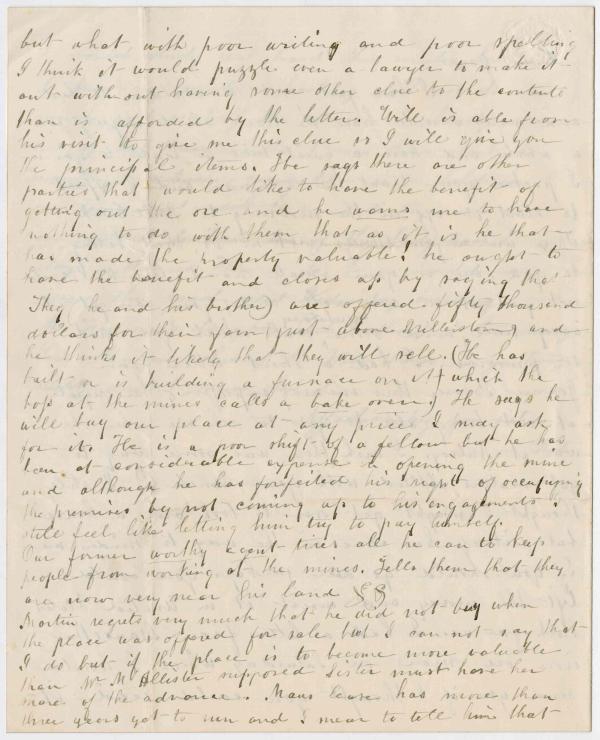 but what with poor writing and poor spelling
I think it would puzzle even a lawyer to make it
out without having some other clue to the contents
than is afforded by the letter. Will is able from
his visit to give me this clue so I will give you
the principal items. He says there are other
parties that would like to have the benefit of
getting out the ore and he warns me to have
nothing to do with them that as it is he that
has made the property valuable! he ought to
have the benefit and closes up by saying that
They he and his brother) are offered fifty thousand
dollars for their farm (just above Millerstown) and
he thinks it likely that they will sell. (He has
built or is building a furnace on it) which the
boss at the mines calls a bake oven.) He says he
will buy our place at any price I may ask
for it. He is a poor shift of a fellow but he has
been at considerable expense in opening the mine
and although he has forfeited his right of occupying
the premises by not coming up to his engagements I
still feel like letting him try to pay himself.
Our former worthy agent tires all he can to keep
people from working at the mines. Tells them that they
are now very near his land
Martin regrets very much that he did not buy when
the place was offered for sale but I can not say that
I do but if the place is to become more valuable
than Mr McAllister supposed Sister must have her
share of the advance. Maus lease has more than
three years yet to run and I mean to tell him that